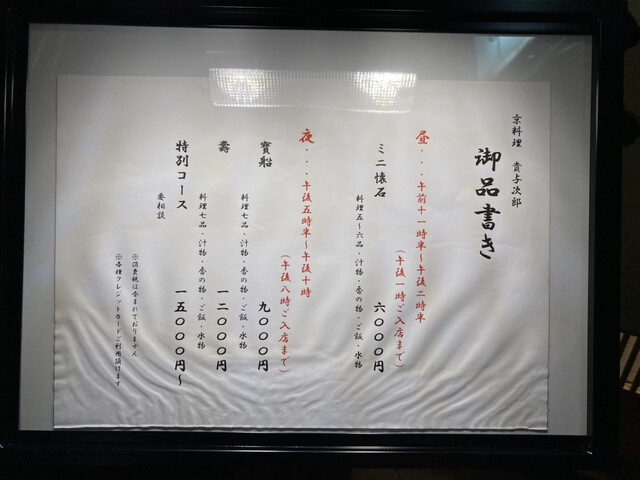 京料理 貴与次郎
御品書き
昼・・・午前十一時半～午後二時半
(午後一時ご入店まで)
ミニ懐石
六〇〇〇円
料理五～六品・汁物・香の物・ご飯・水物
夜・・・午後五時半～午後十時
(午後八時ご入店まで)
寳船
九〇〇〇円
料理七品・汁物・香の物・ご飯・水物
壽
一二〇〇〇円
料理七品・汁物・香の物・ご飯・水物
特別コース
一五〇〇〇円～
要相談
※消費税は含まれておりません
※各種クレジットカードご利用頂けます